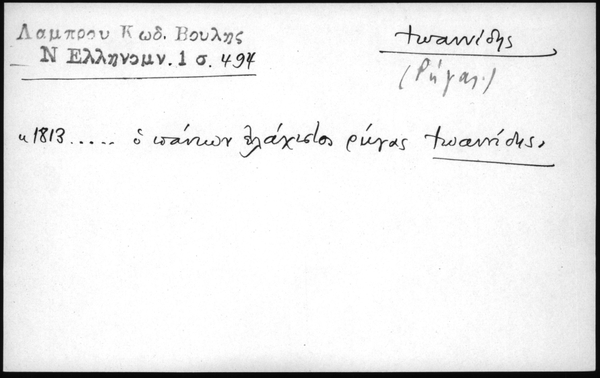 Λαμπρου Κωδ. Βουλης
Ν Ελληνομν. 1 σ. 494
Ἰωαννίδης
(Ρήγας)
"1813..... ὁ πάντων ἐλάχιστος ρήγας Ἰωαννίδης,